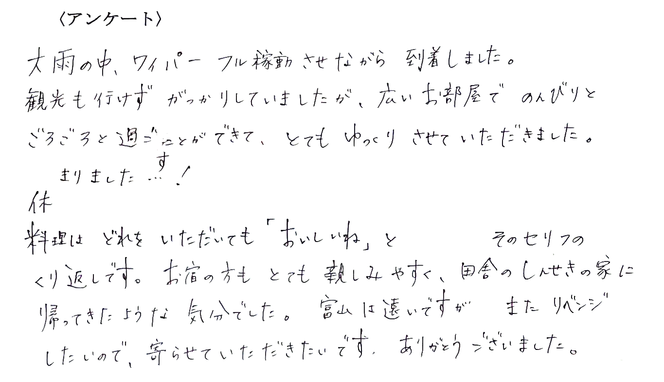 〈アンケート〉
大雨の中、ワイパー フル稼動させながら 到着しました。
観光も行けず がっかりしていましたが、広いお部屋で のんびりと
ごろごろと過ごすことができて、とても ゆっくり させていただきました。
休まりました…!
料理は どれを いただいても「おいしいね」と そのセリフの
くり返しです。お宿の方も とても 親しみやすく、田舎のしんせきの家に
帰ってきたような 気分でした。富山は遠いですが また リベンジ
したいので、寄らせていただきたいです。ありがとうございました。